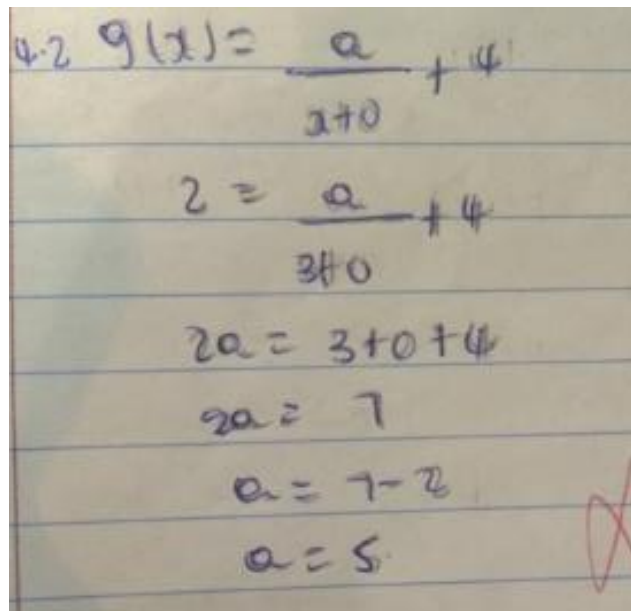 4.2 g(x) = a/(x+0) + 4
2 = a/(3+0) + 4
2a = 3+0+4
2a = 7
a = 7-2
a = 5